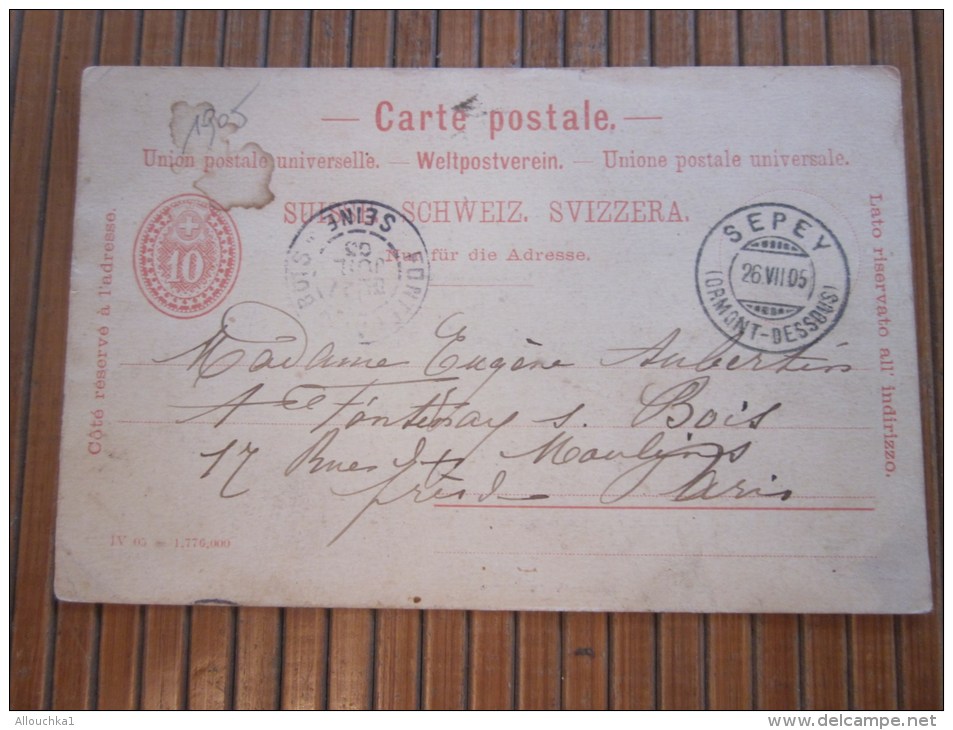 1905
— Carte postale. —
Union postale universelle. — Weltpostverein. — Unione postale universale.
SUISSE. SCHWEIZ. SVIZZERA.
Nur für die Adresse.
Côté réservé à l'adresse.
Lato riservato all' indirizzo.
10
SEINE
BOIS
05
SEPEY
26.VII 05
(ORMONT-DESSOUS)
Madame Eugène Aubertin
A Fontenay s. Bois
17 Rue des Moulins
près de Paris
IV 05 — 1,776,000
Allouchka1
http://www.delcampe.net